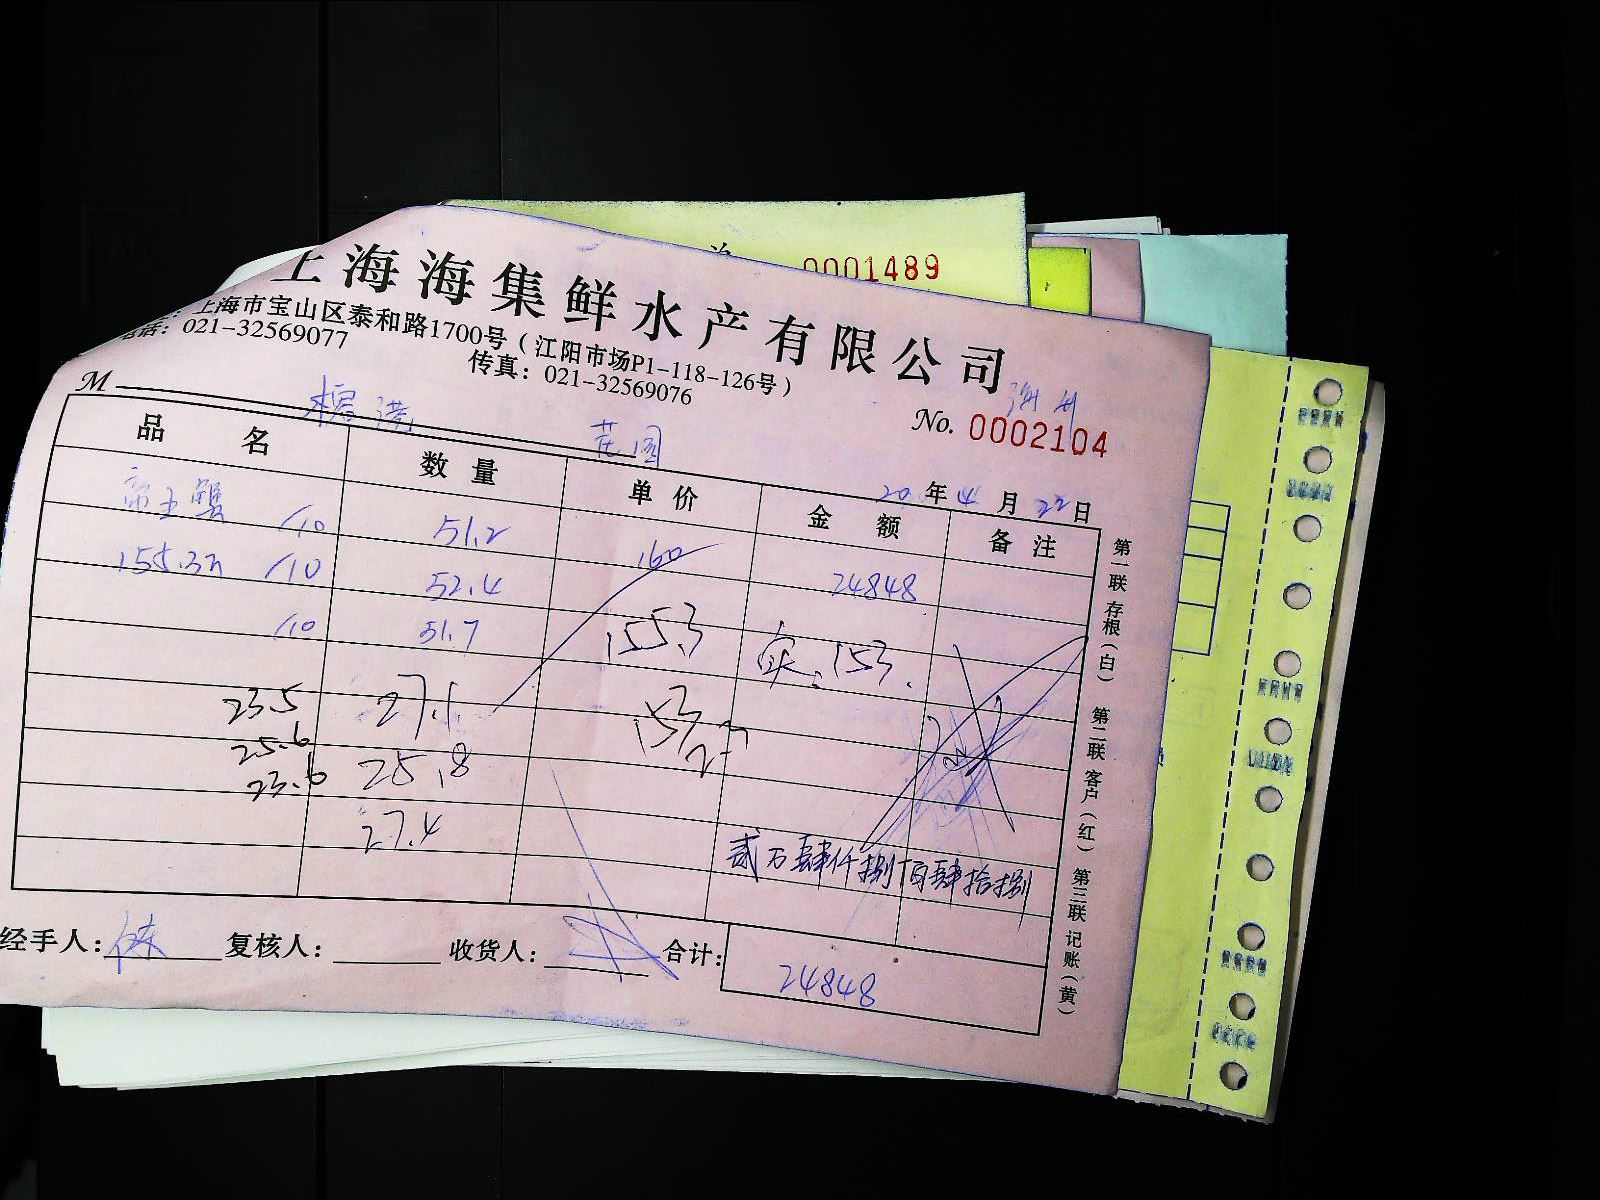 0001489
上海海集鲜水产有限公司
上海市宝山区泰和路1700号（江阳市场P1-118-126号）
电话：021-32569077 传真：021-32569076
M 港 花园
No. 0002104
20 年 4 月 22 日
品名 数量 单价 金额 备注
帝王蟹 /10 51.2 160 24848
155.3 /10 52.4
/10 51.7 155.3 实.153.
23.5 27.1 153/2.3
25.6 25.8
23.6 27.4
贰万肆仟捌百肆拾捌
经手人： 复核人： 收货人： 合计：24848
第一联 存根（白） 第二联 客户（红） 第三联 记账（黄）